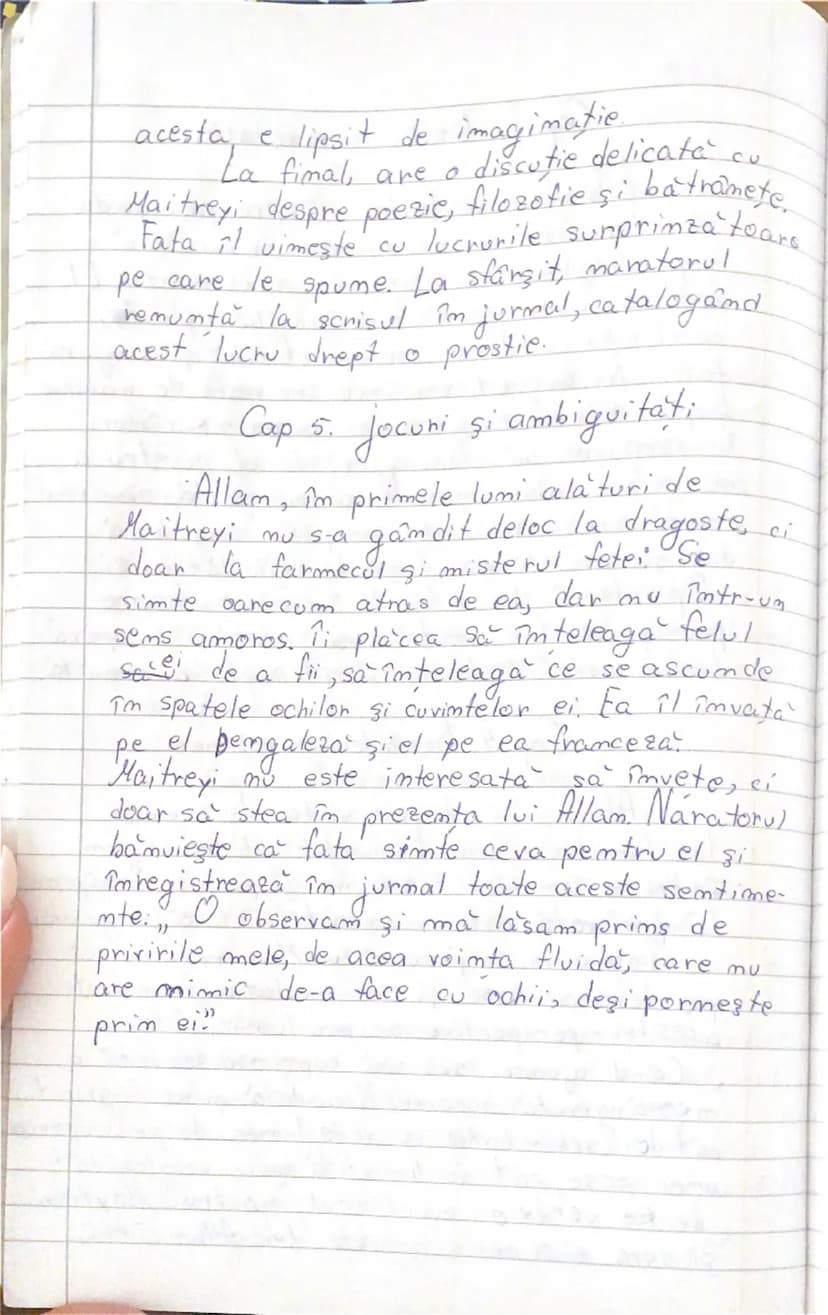 acesta, e lipsit de imaginație.
La final, are o discuție delicată cu
Maitreyi despre poezie, filozofie și bătrânețe.
Fata îl uimește cu lucrurile surprinzătoare
pe care le spune. La sfârșit, naratorul
renunță la scrisul în jurnal, catalogând
acest lucru drept o prostie.
Cap 5. jocuri și ambiguități
Allan, în primele luni alături de
Maitreyi nu s-a gândit deloc la dragoste, ci
doar la farmecul și misterul fetei. Se
simte oarecum atras de ea, dar nu într-un
sens amoros. Îi plăcea să înțeleagă felul
ei de a fii, să înțeleagă ce se ascunde
în spatele ochilor și cuvintelor ei. Ea îl învață
pe el bengaleză și el pe ea franceză.
Maitreyi nu este interesată să învețe, ci
doar să stea în prezența lui Allan. Naratorul
bănuiește că fata simte ceva pentru el și
înregistrează în jurnal toate aceste sentime-
nte: „O observam și mă lăsam prins de
privirile mele, de acea voința fluidă, care nu
are nimic de-a face cu ochii, deși pornește
prin ei."